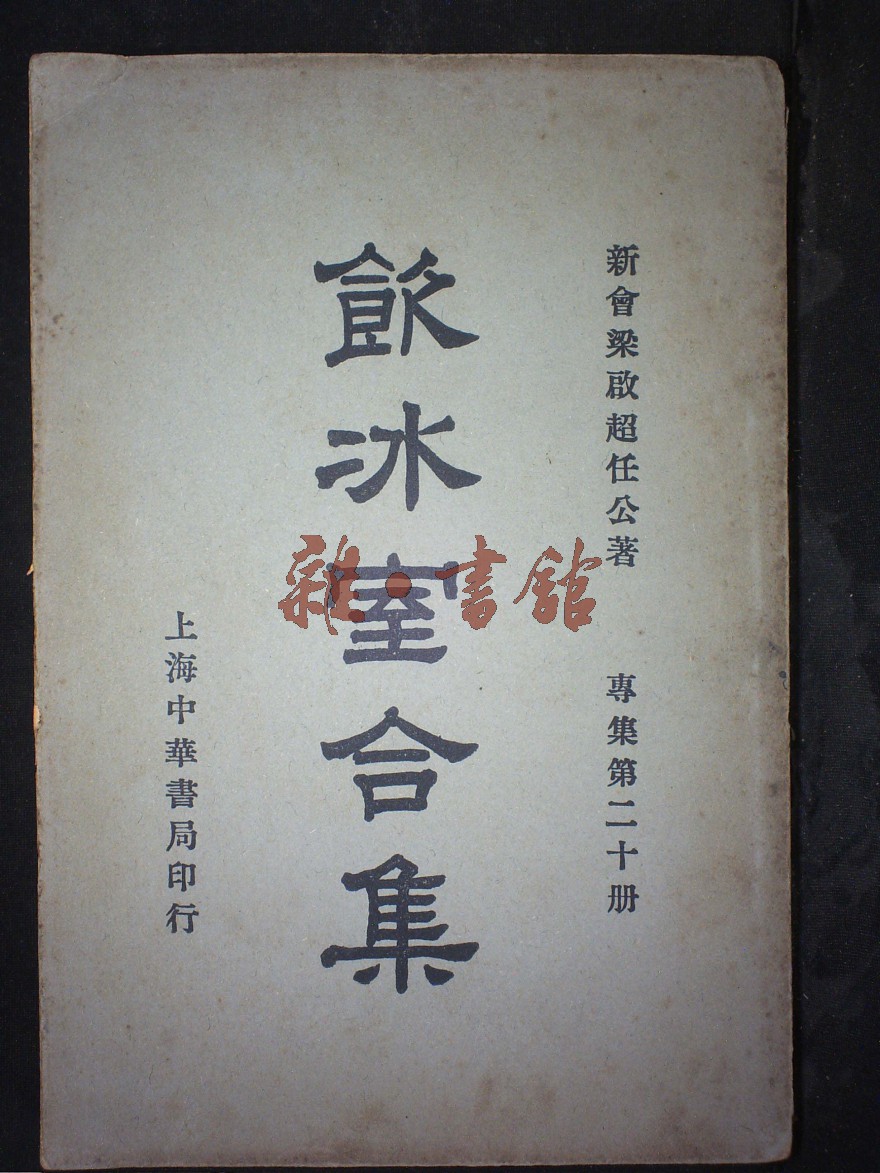 新會梁啟超任公著　專集第二十册
飲冰室合集
雜·書館
上海中華書局印行